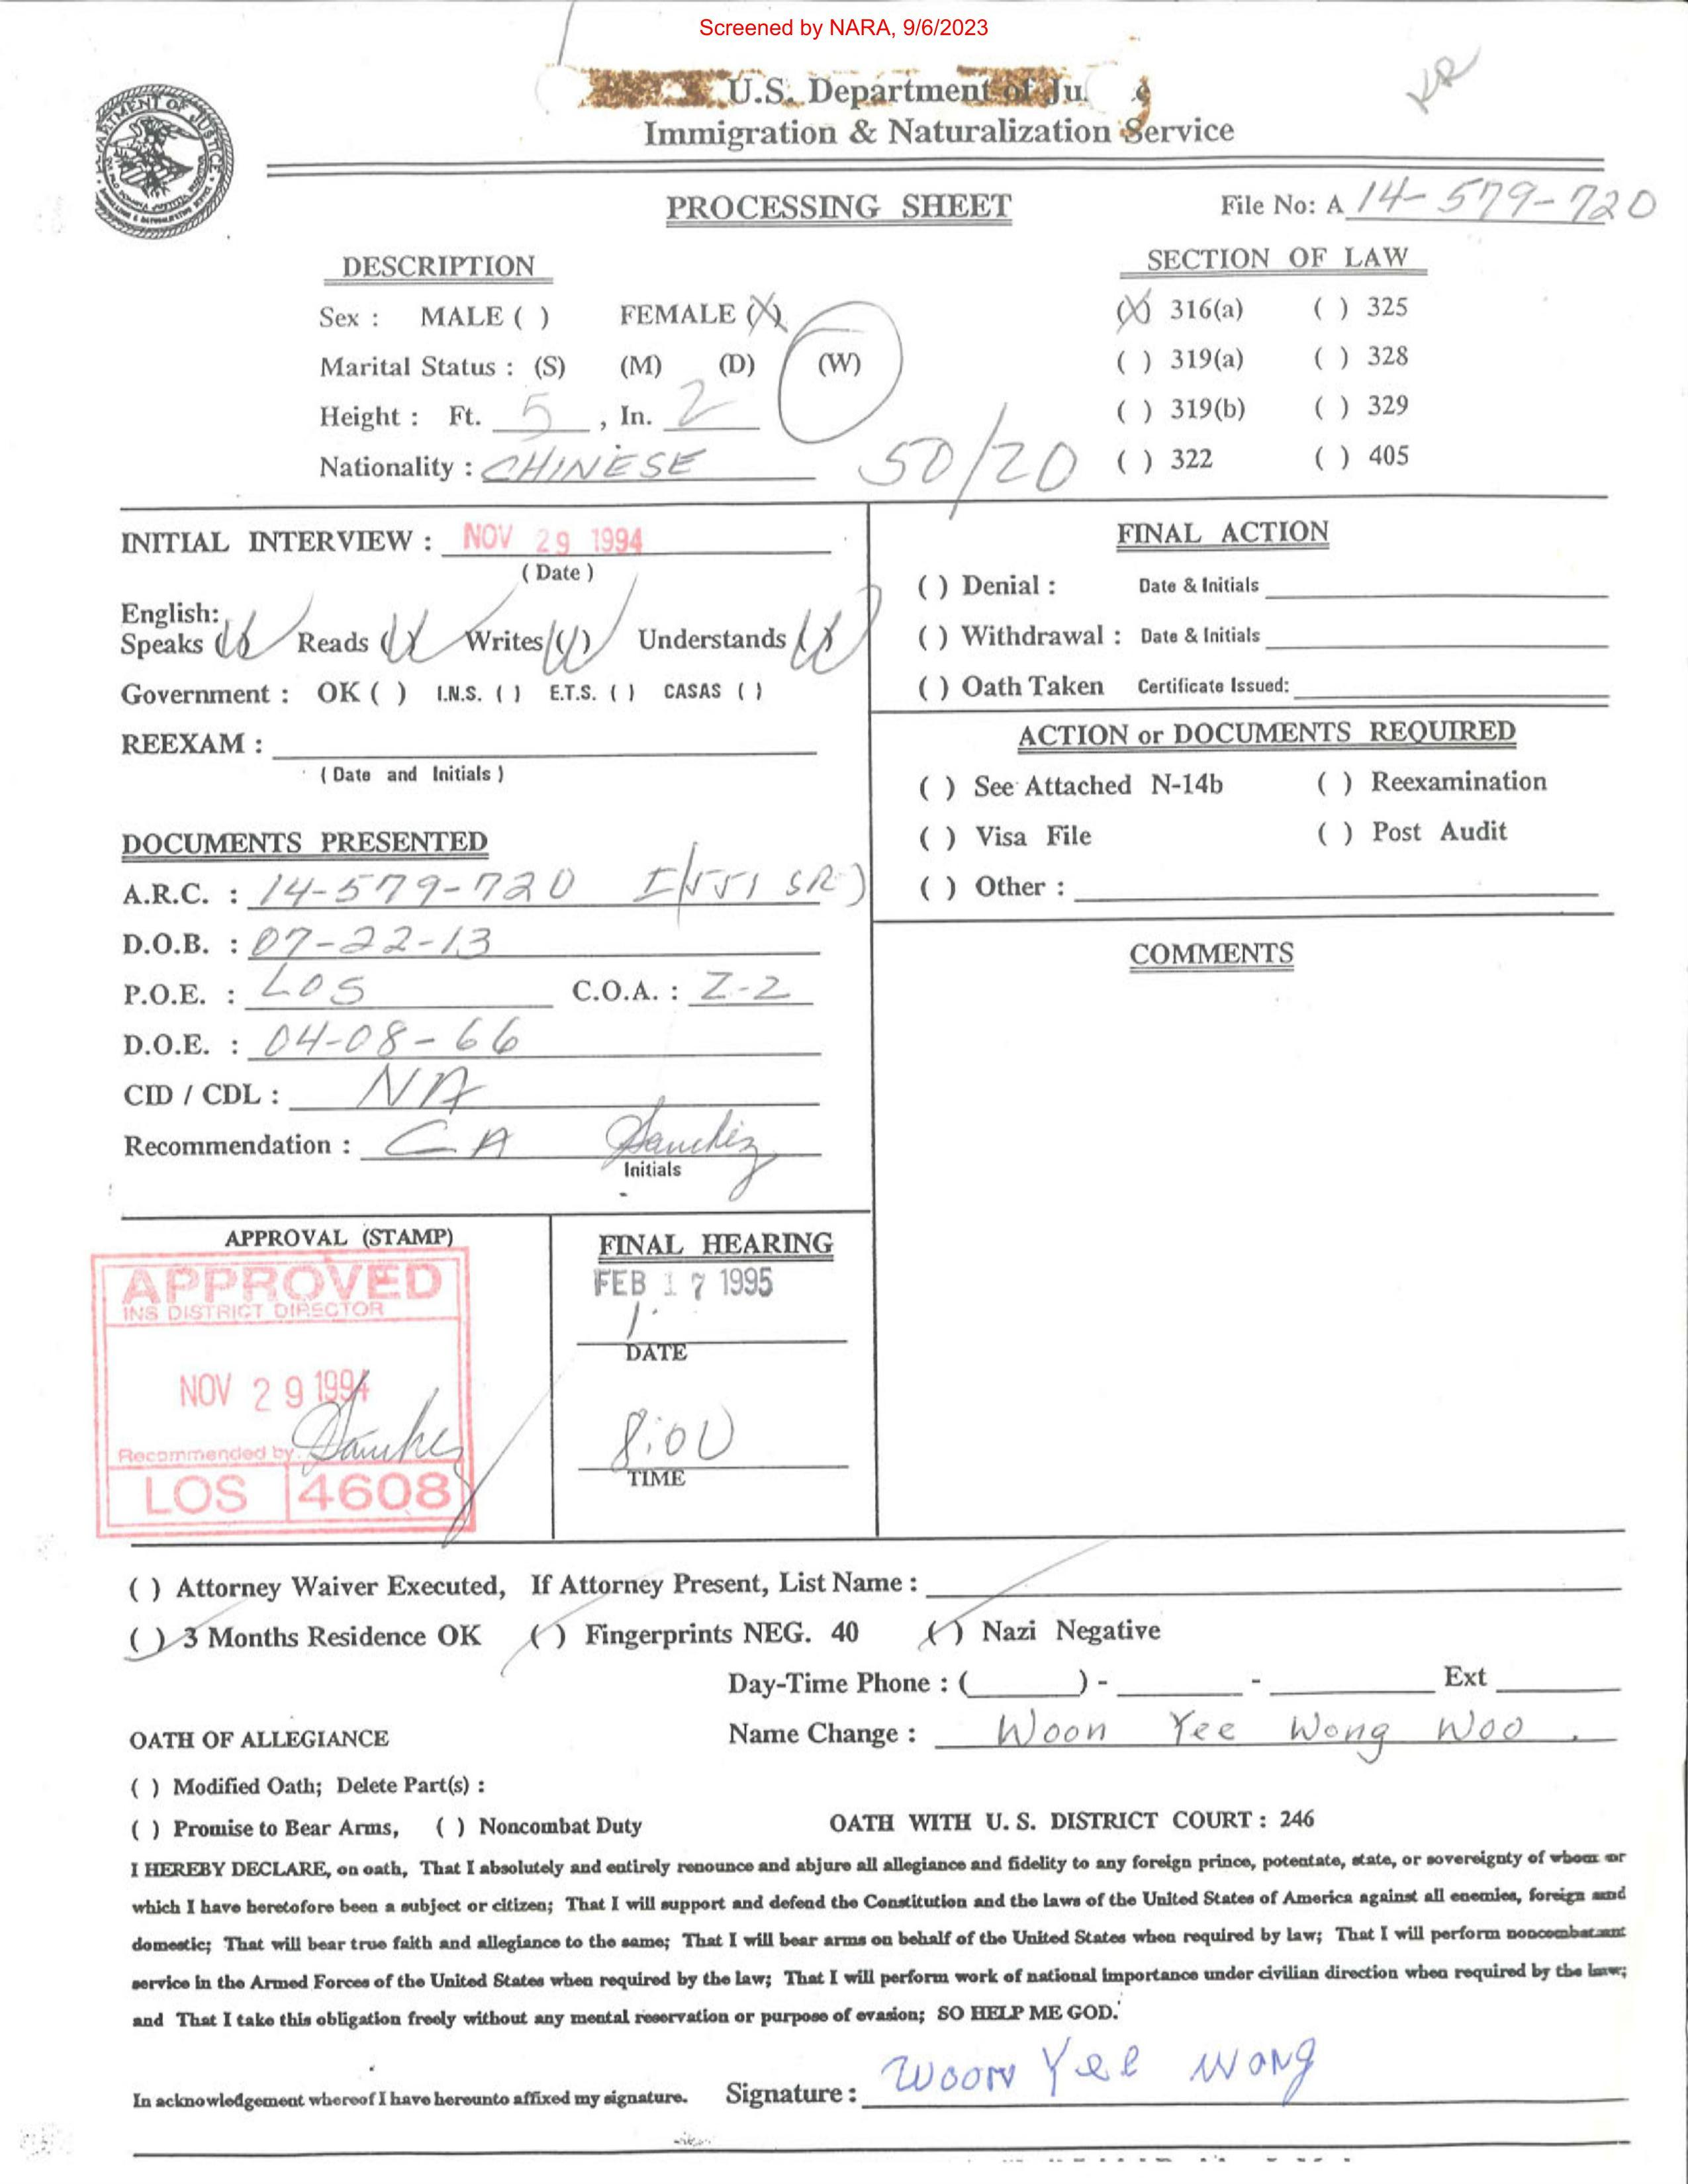 Screened by NARA, 9/6/2023
KR
U.S. Department of Ju
Immigration & Naturalization Service
PROCESSING SHEET
File No: A 14-579-720
DESCRIPTION
Sex : MALE ( ) FEMALE (X)
Marital Status : (S) (M) (D) (W)
Height : Ft. 5 , In. 2
Nationality : CHINESE
50/20
SECTION OF LAW
(X) 316(a) ( ) 325
( ) 319(a) ( ) 328
( ) 319(b) ( ) 329
( ) 322 ( ) 405
INITIAL INTERVIEW : NOV 29 1994
( Date )
English:
Speaks (✓) Reads (✓) Writes (✓) Understands (✓)
Government : OK ( ) I.N.S. ( ) E.T.S. ( ) CASAS ( )
REEXAM :
( Date and Initials )
DOCUMENTS PRESENTED
A.R.C. : 14-579-720 I-551 SR)
D.O.B. : 07-22-13
P.O.E. : LOS C.O.A. : Z-2
D.O.E. : 04-08-66
CID / CDL : NA
Recommendation : CA Sanchez
Initials
FINAL ACTION
( ) Denial : Date & Initials
( ) Withdrawal : Date & Initials
( ) Oath Taken Certificate Issued:
ACTION or DOCUMENTS REQUIRED
( ) See Attached N-14b ( ) Reexamination
( ) Visa File ( ) Post Audit
( ) Other :
COMMENTS
APPROVAL (STAMP)
APPROVED
INS DISTRICT DIRECTOR
NOV 29 1994
Recommended by Sanchez
LOS 4608
FINAL HEARING
FEB 17 1995
DATE
8:00
TIME
( ) Attorney Waiver Executed, If Attorney Present, List Name :
(✓) 3 Months Residence OK (✓) Fingerprints NEG. 40 (✓) Nazi Negative
Day-Time Phone : ( ) - - Ext
OATH OF ALLEGIANCE
Name Change : Woon Yee Wong Woo .
( ) Modified Oath; Delete Part(s) :
( ) Promise to Bear Arms, ( ) Noncombat Duty
OATH WITH U. S. DISTRICT COURT : 246
I HEREBY DECLARE, on oath, That I absolutely and entirely renounce and abjure all allegiance and fidelity to any foreign prince, potentate, state, or sovereignty of whom or
which I have heretofore been a subject or citizen; That I will support and defend the Constitution and the laws of the United States of America against all enemies, foreign and
domestic; That will bear true faith and allegiance to the same; That I will bear arms on behalf of the United States when required by law; That I will perform noncombatant
service in the Armed Forces of the United States when required by the law; That I will perform work of national importance under civilian direction when required by the law;
and That I take this obligation freely without any mental reservation or purpose of evasion; SO HELP ME GOD.
In acknowledgement whereof I have hereunto affixed my signature. Signature : Woon Yee Wong